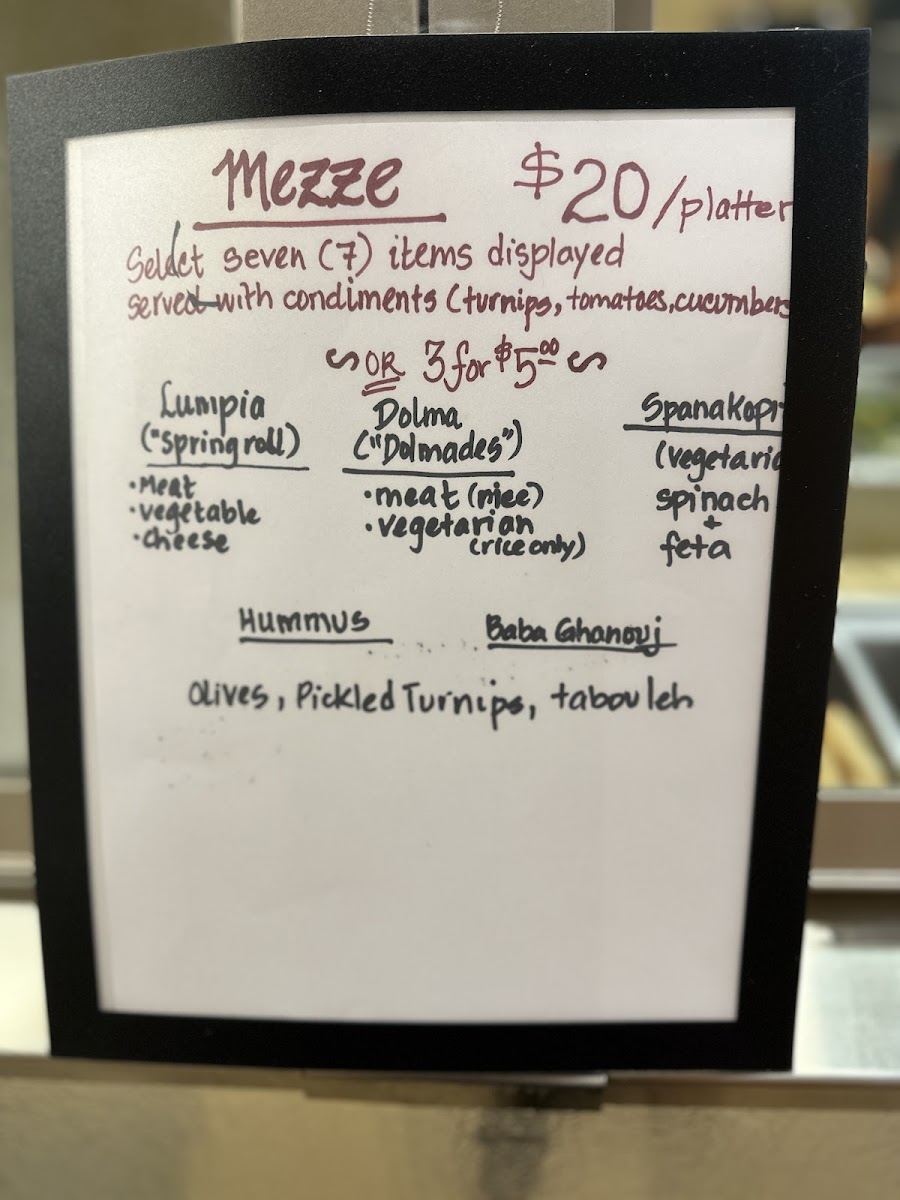 Mezze $20/platter
Select seven (7) items displayed
served with condiments (turnips, tomatoes, cucumbers
OR 3 for $5.00
Lumpia Dolma Spanakopi
("Spring roll) ("Dolmades") (vegetaria
•Meat •meat (rice) spinach
•vegetable •vegetarian +
•cheese (rice only) feta
Hummus Baba Ghanouj
Olives, Pickled Turnips, tabouleh